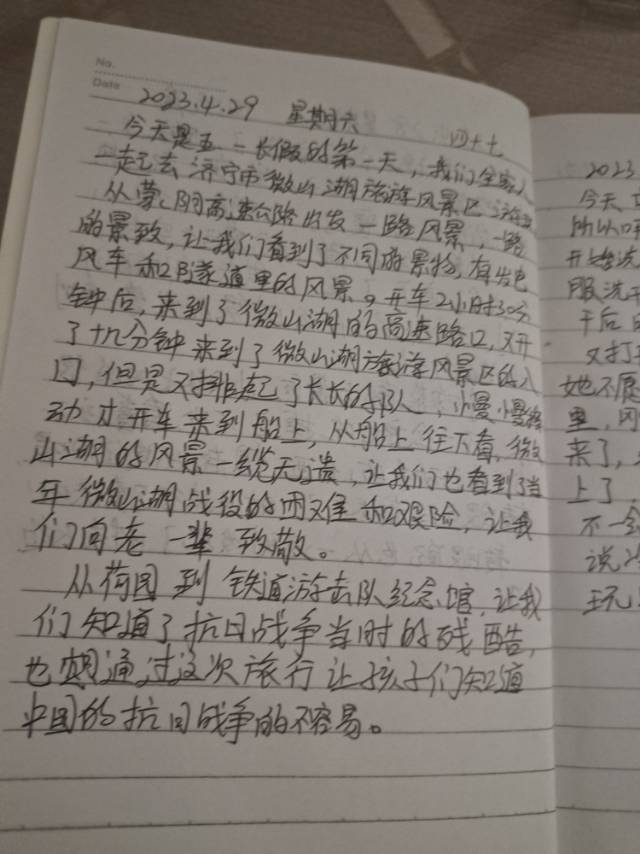 No.
Date
2023.4.29 星期六 四十七
今天是五一长假的第一天，我们全家人
一起去济宁市微山湖旅游风景区游玩
从蒙阴高速公路出发一路风景，一路
的景致，让我们看到了不同的景物，有发电
风车和隧道里的风景。开车2小时30分
钟后，来到了微山湖的高速路口，又开
了十几分钟来到了微山湖旅游风景区的入
口，但是又排起了长长的队，小曼小曼移
动才开车来到船上，从船上往下看，微
山湖的风景一缆无遗，让我们也看到了当
年微山湖战役的困难和艰险，让我
们向老一辈致敬。
从荷园到铁道游击队纪念馆，让我
们知道了抗日战争当时的残酷，
也想通过这次旅行让孩子们知道
中国的抗日战争的不容易。
2023
今天
所以
开始洗
服洗
干后
又打
她不愿
里，
来了，
上了，
不一会
说
玩